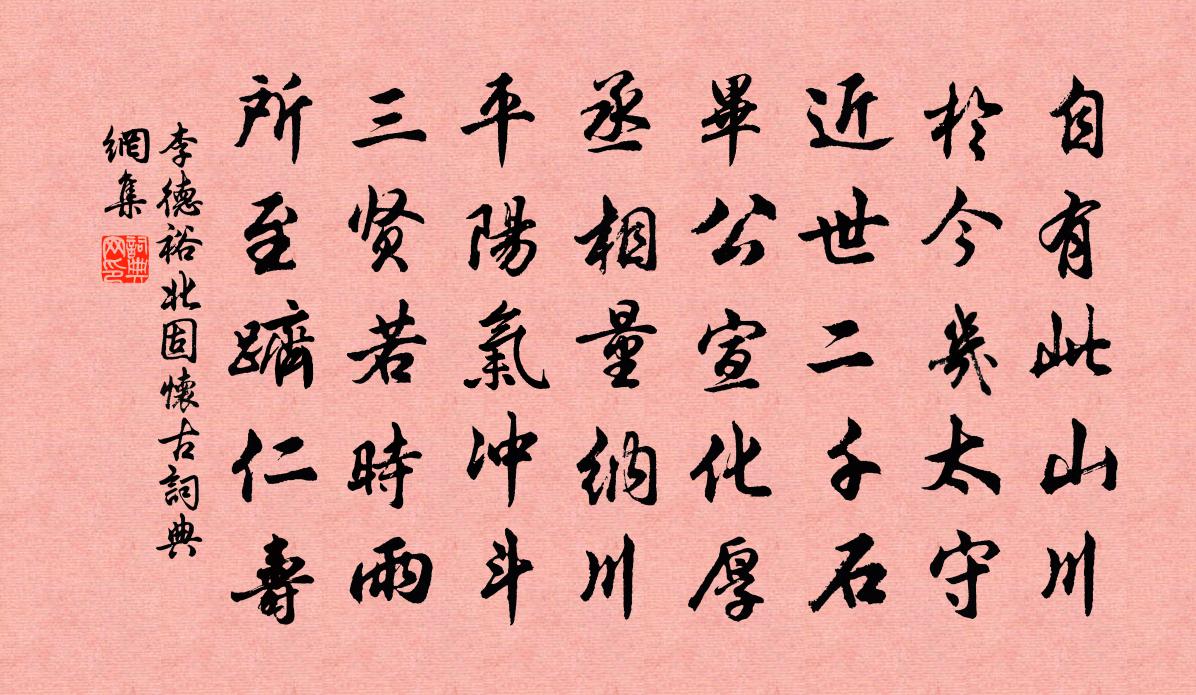 自有此山川
於今幾太守
近世二千石
畢公宣化厚
丞相量納川
平陽氣冲斗
三贤若時雨
所至躋仁壽
李德裕北固懷古詞典
網集
詞典
网印